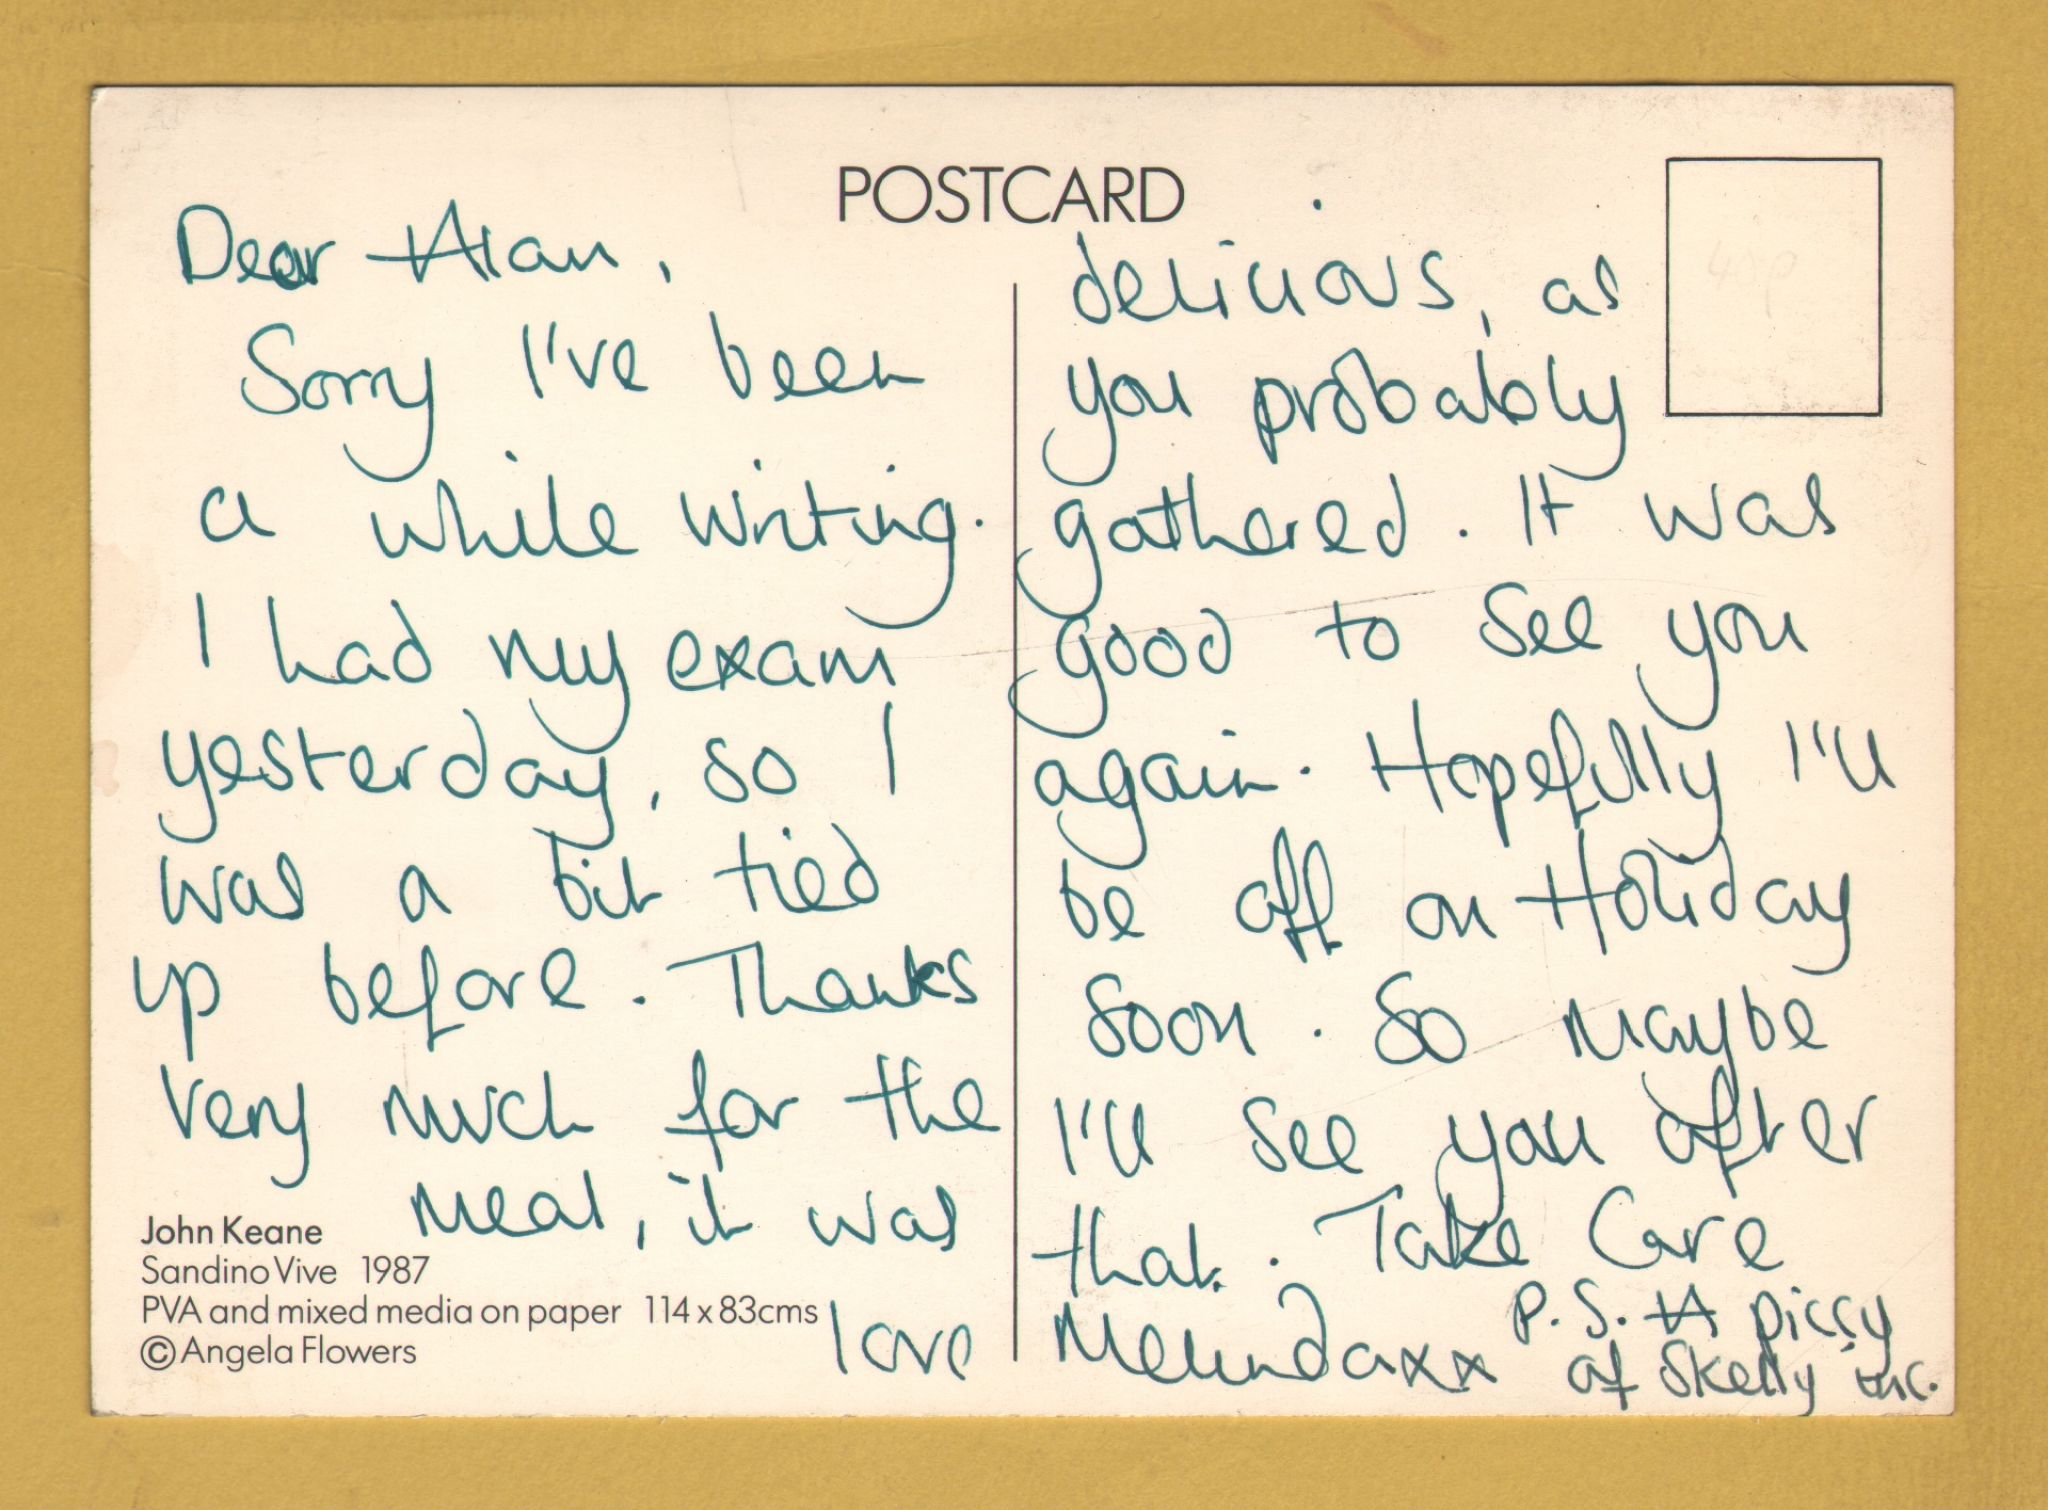 POSTCARD
Dear Alan,
Sorry I've been
a while writing.
I had my exam
yesterday, so I
was a bit tied
up before. Thanks
very much for the
meal, it was
love
delicious, as
you probably
gathered. It was
good to see you
again. Hopefully I'll
be off on Holiday
soon. So maybe
I'll see you after
that. Take Care
Melindaxx
P.S. A piccy
of Skelly inc.
John Keane
Sandino Vive 1987
PVA and mixed media on paper 114 x 83cms
© Angela Flowers